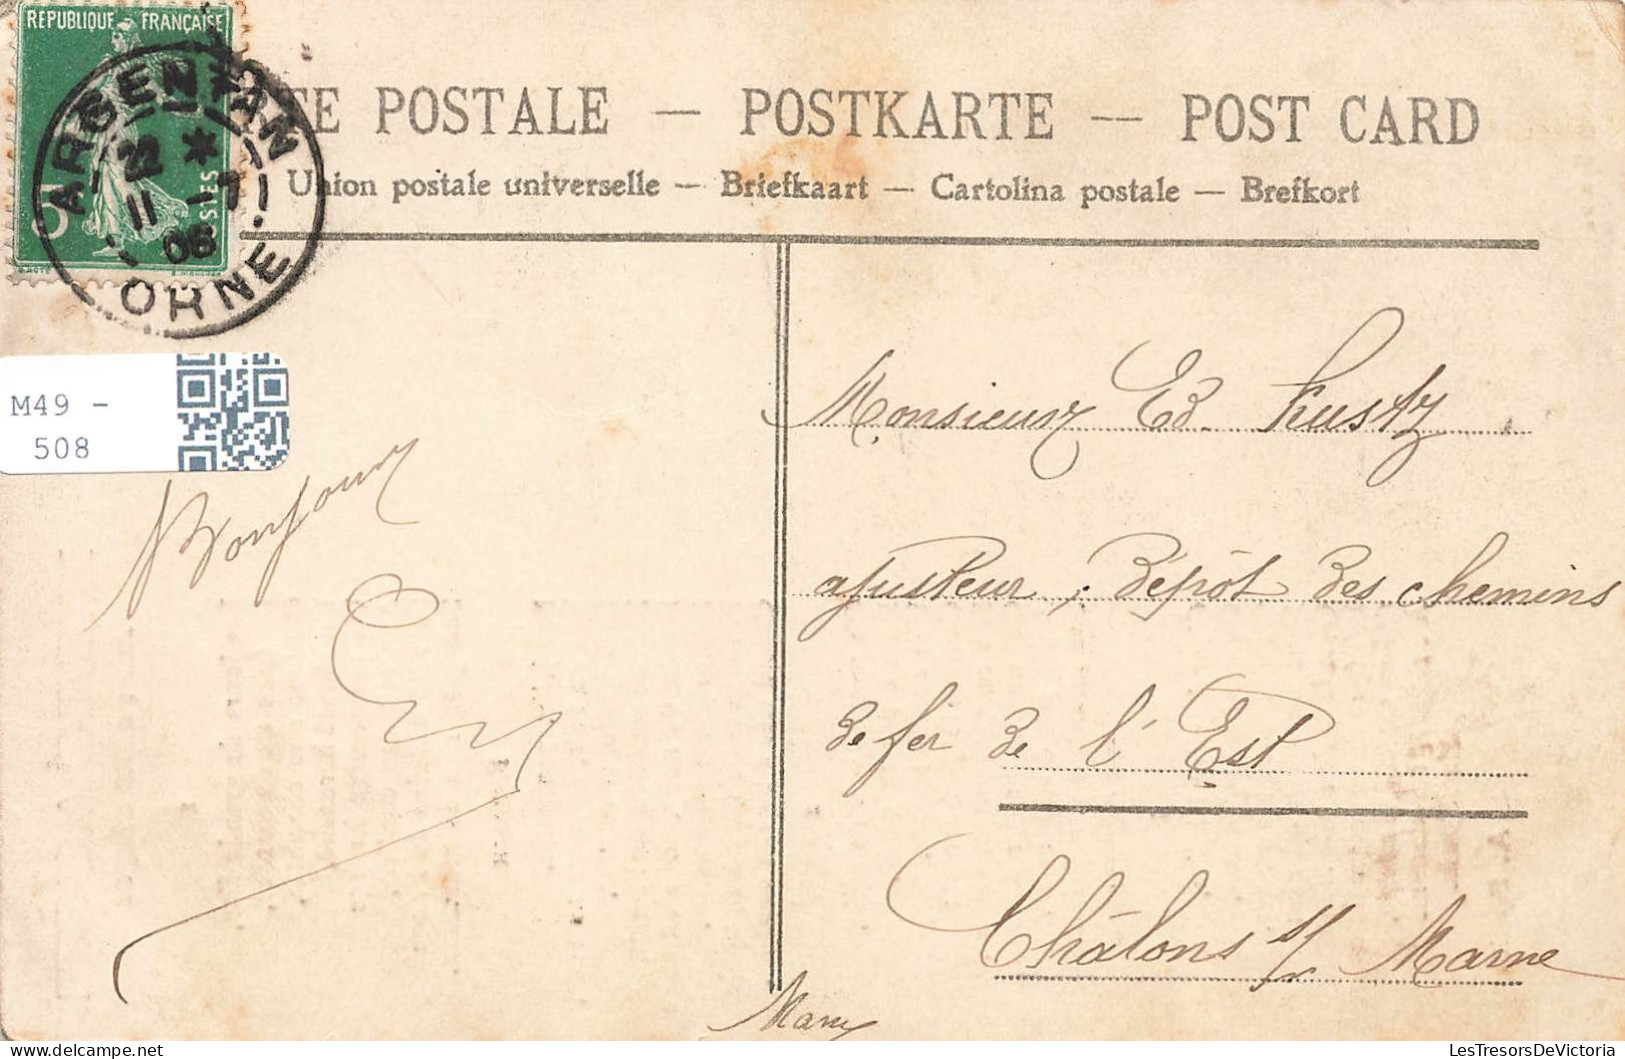 REPUBLIQUE FRANÇAISE
ARGENTAN
22 *
11 -7
08
ORNE
5
POSTES
TE POSTALE — POSTKARTE — POST CARD
Union postale universelle — Briefkaart — Cartolina postale — Brefkort
M49 -
508
Bonjour
Monsieur Ed.
ajusteur, dépôt des chemins
de fer de l'Est
Châlons s/ Marne
LesTresorsDeVictoria